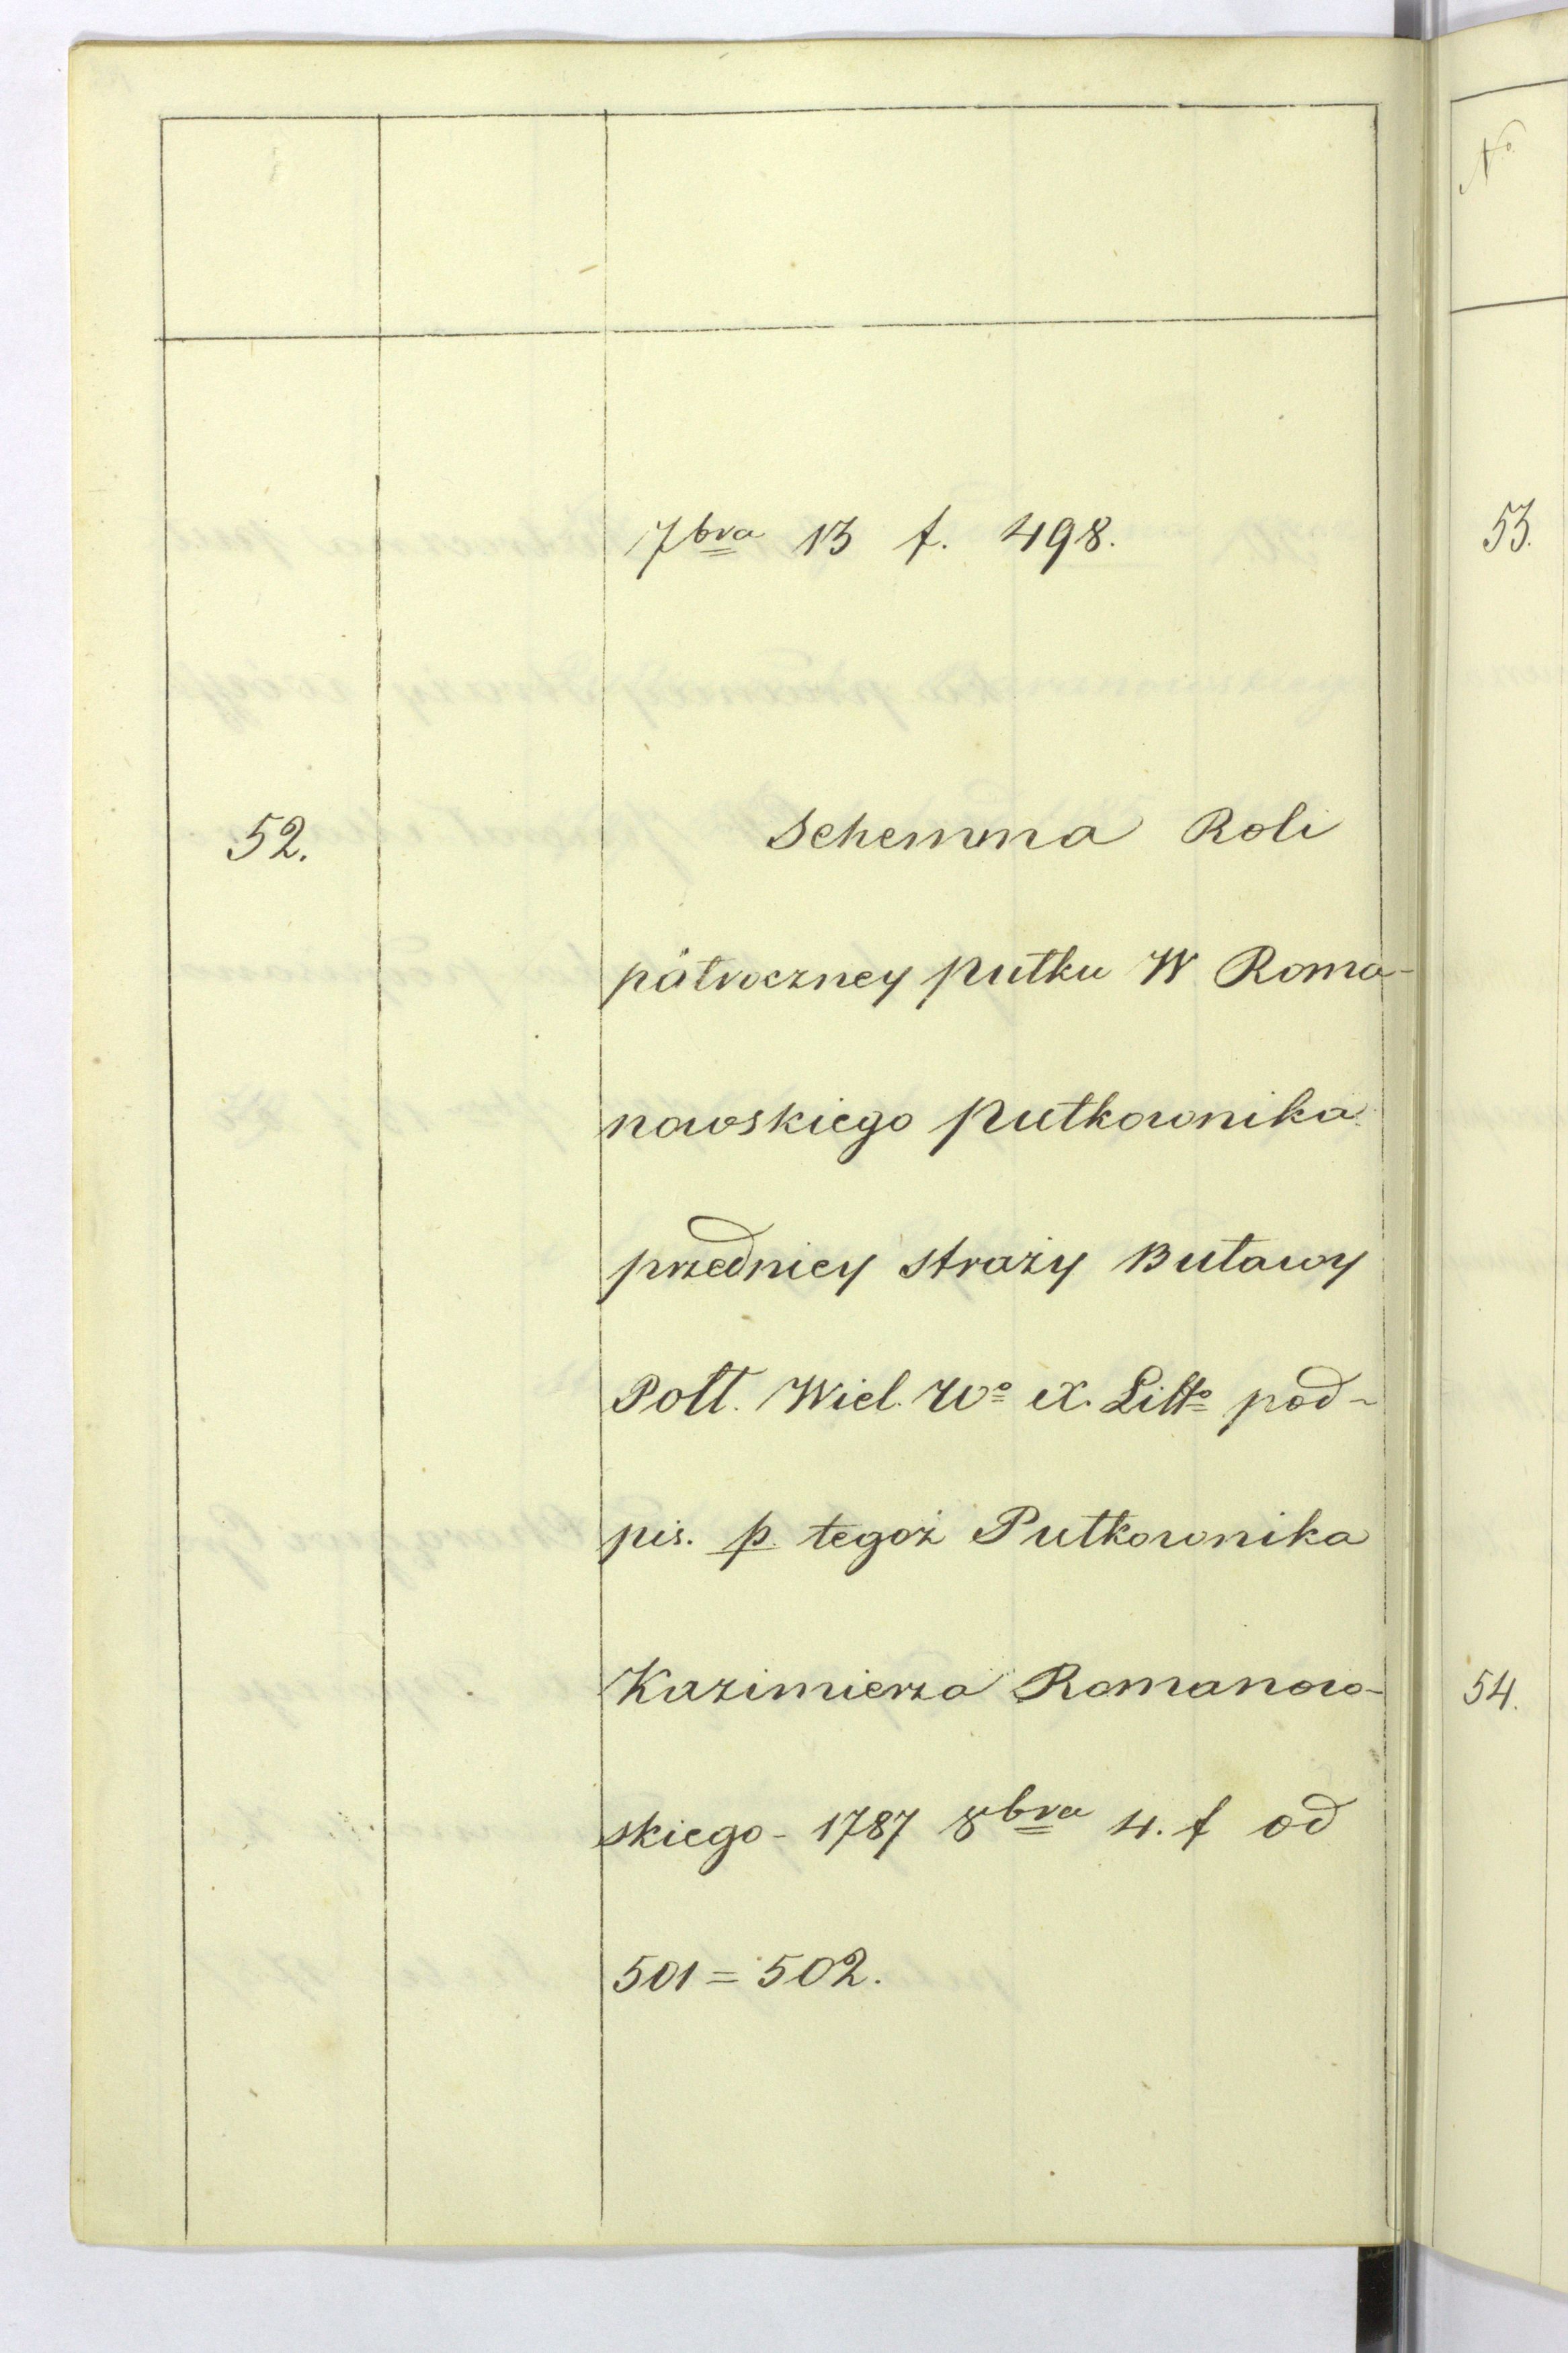 7bra 13 f. 498.
52. Schemma Roli
półroczney pułku W Roma-
nowskiego pułkownika
przedniey straży Buławy
Polł. Wiel. Wo X. Litto pod-
pis. p. tegoż Pułkownika
Kazimierza Romanow-
skiego - 1787 8bra 4. f od
501 = 502.
No
53.
54.